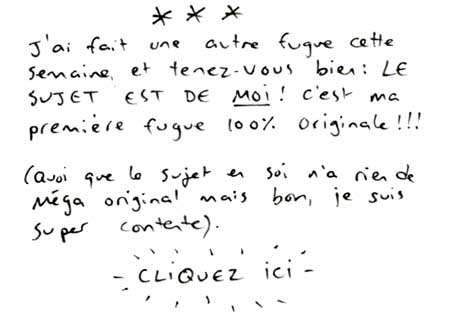 * * *
J'ai fait une autre fugue cette
semaine, et tenez-vous bien : LE
SUJET EST DE MOI ! C'est ma
première fugue 100% originale !!!
(Quoi que le sujet en soi n'a rien de
méga original mais bon, je suis
super contente).
- CLIQUEZ ici -